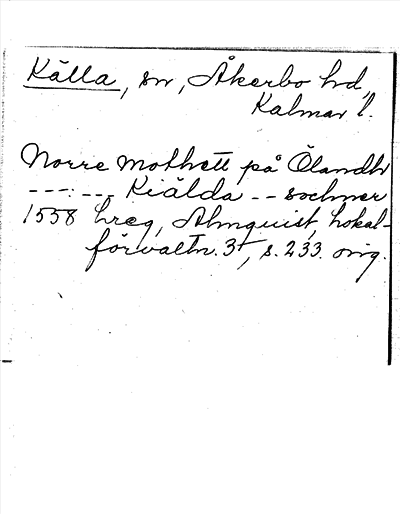 Källa, sn, Åkerbo hd,
Kalmar l.
Norre Mothett på Ölandh
---:--- Kiälda -- sochner
1558 hreg, Almquist, Lokal-
förvaltn. 3, s. 233. orig.